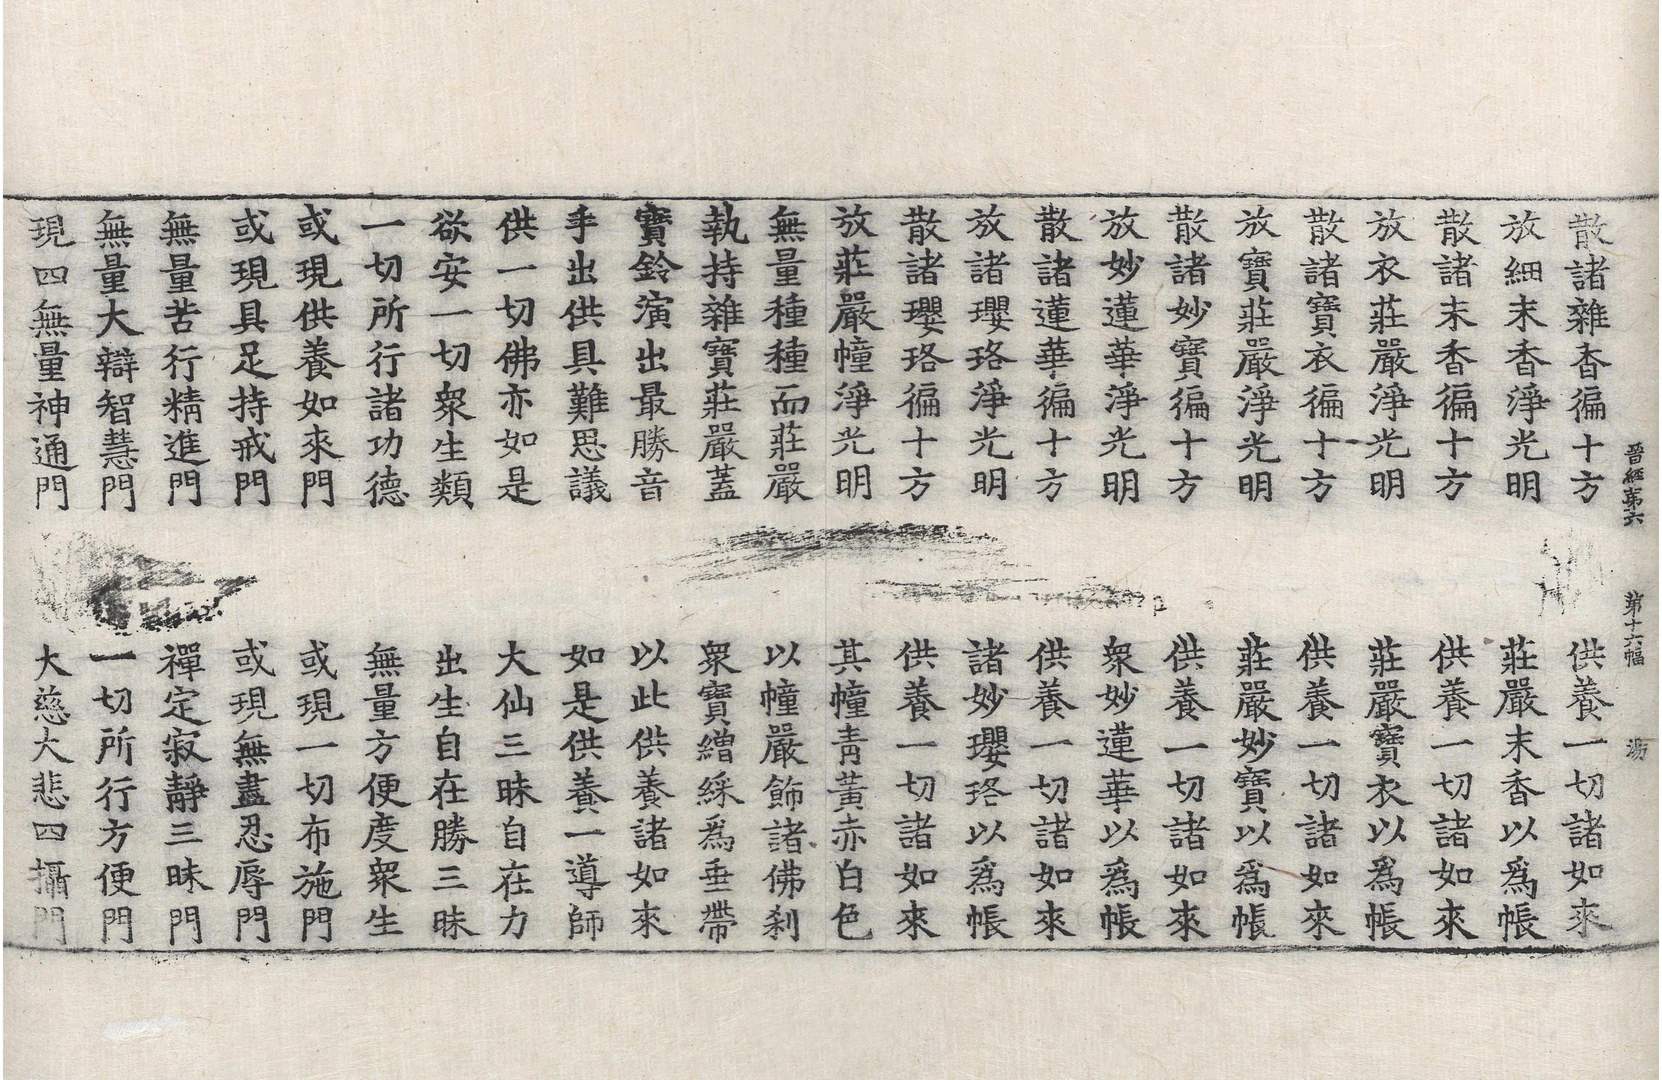 晉經第六 第十六幅 湯
散諸雜香徧十方 供養一切諸如來
放細末香淨光明 莊嚴末香以爲帳
散諸末香徧十方 供養一切諸如來
放衣莊嚴淨光明 莊嚴寶衣以爲帳
散諸寶衣徧十方 供養一切諸如來
放寶莊嚴淨光明 莊嚴妙寶以爲帳
散諸妙寶徧十方 供養一切諸如來
放妙蓮華淨光明 衆妙蓮華以爲帳
散諸蓮華徧十方 供養一切諸如來
放諸瓔珞淨光明 諸妙瓔珞以爲帳
散諸瓔珞徧十方 供養一切諸如來
放莊嚴幢淨光明 其幢青黃赤白色
無量種種而莊嚴 以幢嚴飾諸佛刹
執持雜寶莊嚴蓋 衆寶繒綵爲垂帶
寶鈴演出最勝音 以此供養諸如來
手出供具難思議 如是供養一導師
供一切佛亦如是 大仙三昧自在力
欲安一切衆生類 出生自在勝三昧
一切所行諸功德 無量方便度衆生
或現供養如來門 或現一切布施門
或現具足持戒門 或現無盡忍辱門
無量苦行精進門 禪定寂靜三昧門
無量大辯智慧門 一切所行方便門
現四無量神通門 大慈大悲四攝門